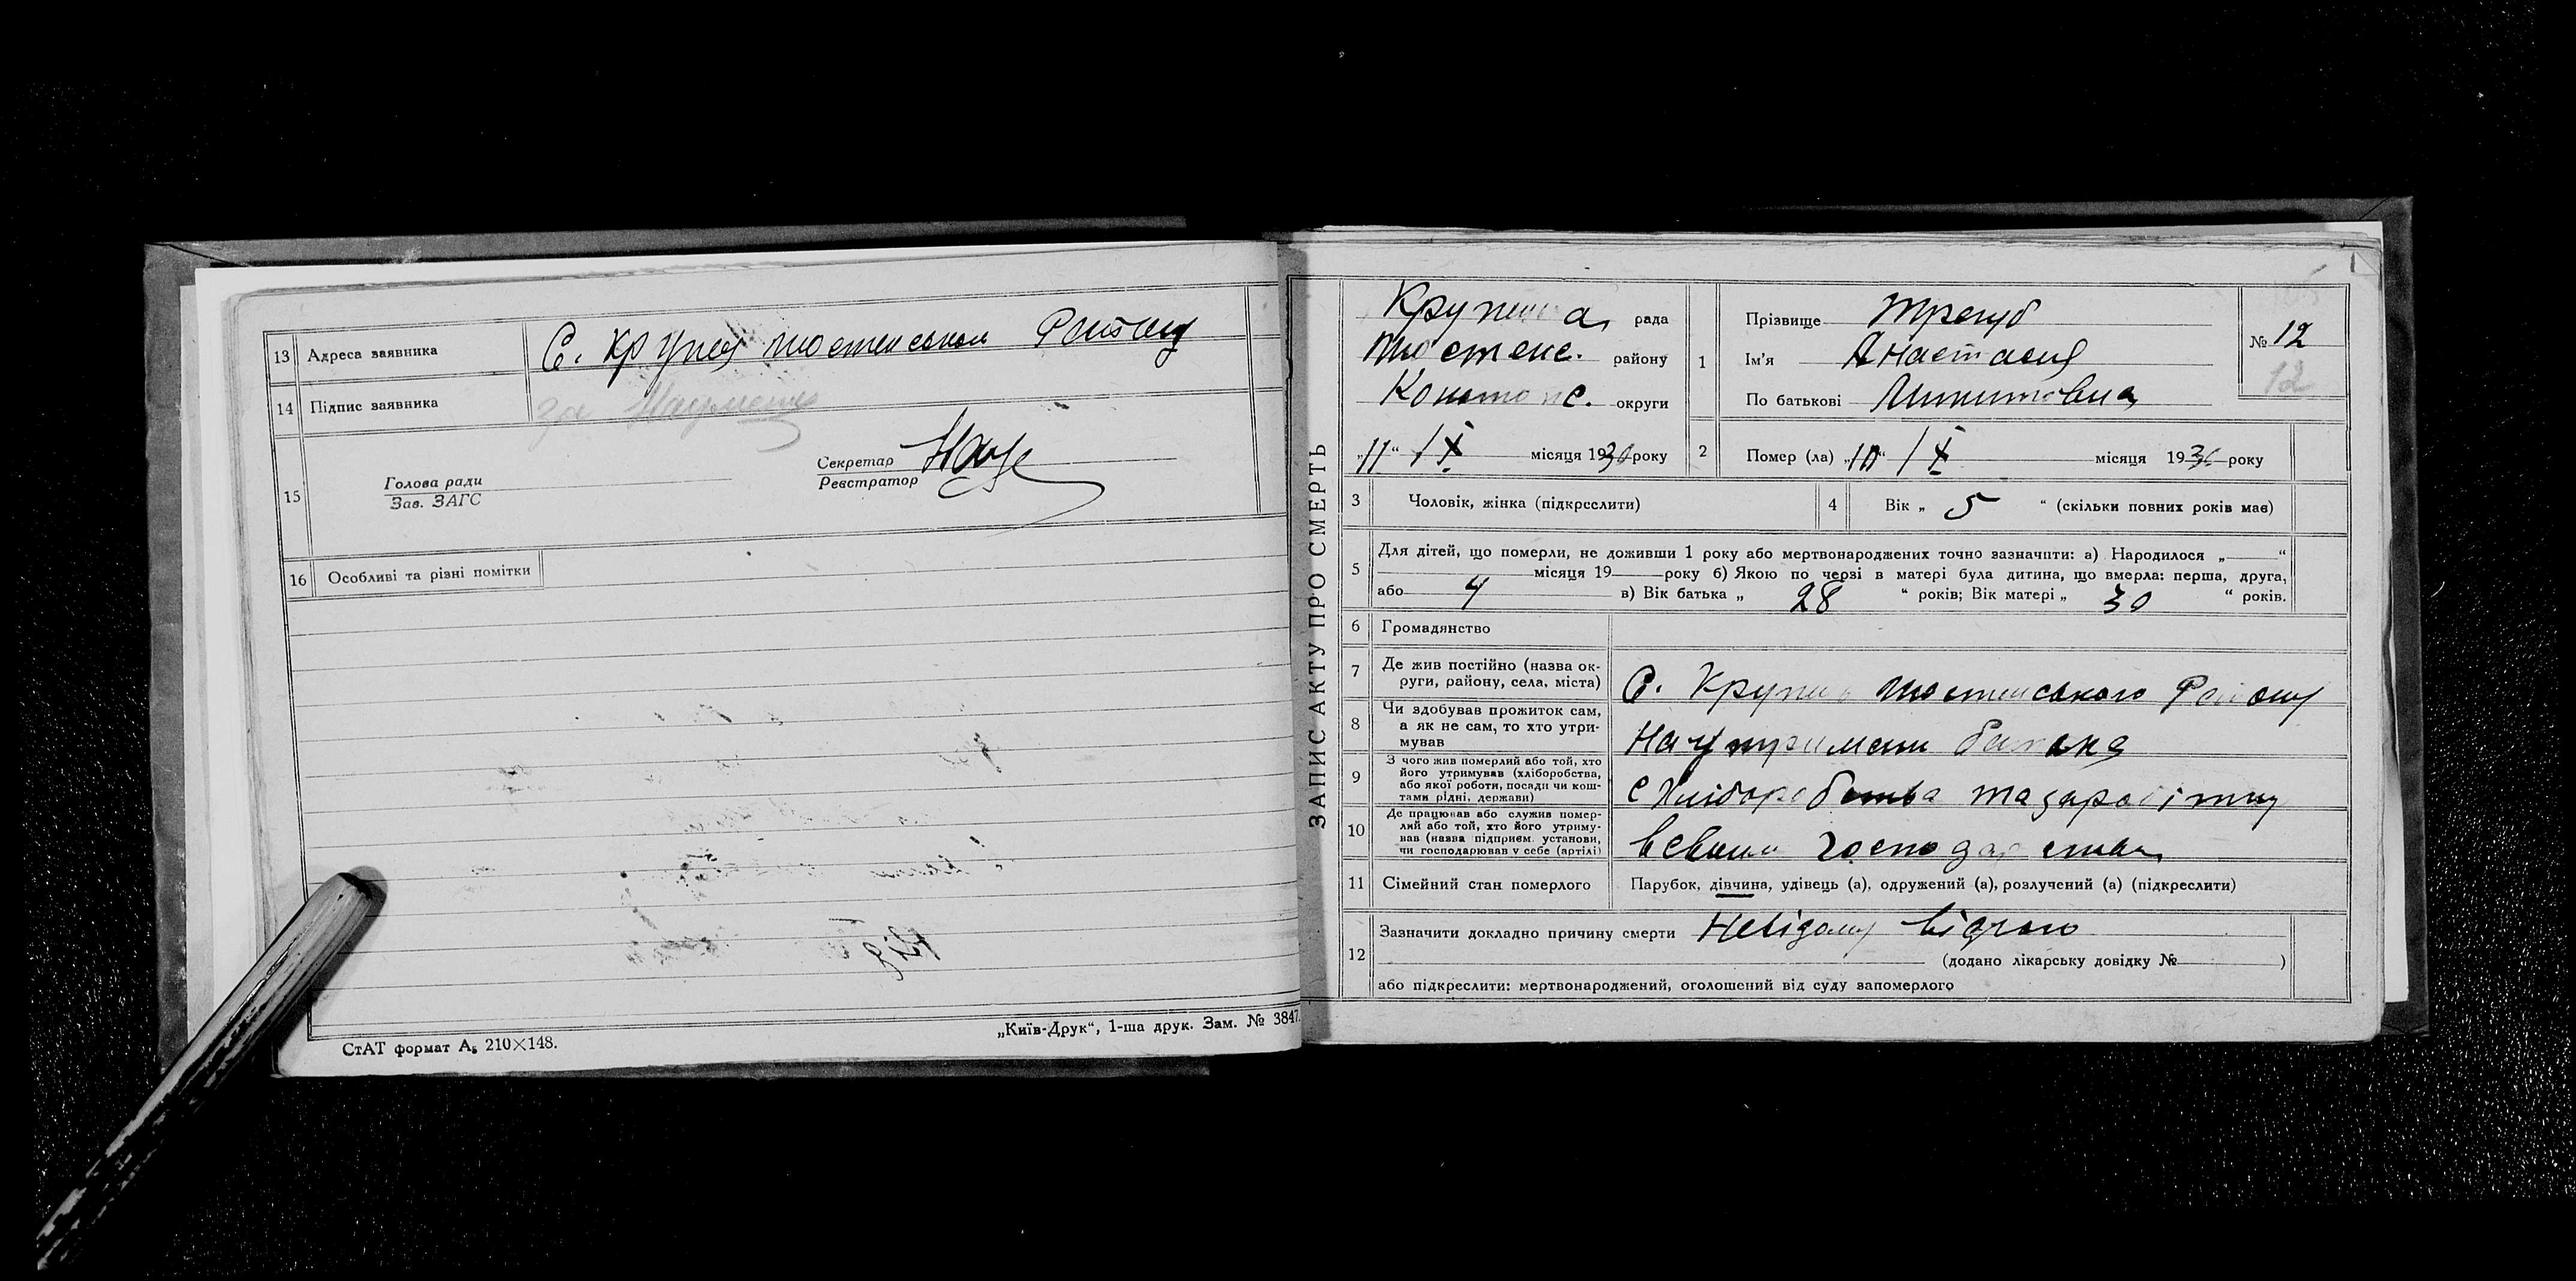 13 Адреса заявника С. Крупец
14 Підпис заявника за
15 Голова ради
Зав. ЗАГС
Секретар
Реєстратор
16 Особливі та різні помітки
СтАТ формат А₅ 210×148.
„Київ-Друк“, 1-ша друк. Зам. № 3847.
ЗАПИС АКТУ ПРО СМЕРТЬ
рада
району
Конотопс. округи
„11“ IX місяця 1930 року
1 Прізвище Трегуб
Ім'я Анастасия
По батькові
№ 12
12
2 Помер (ла) „10“ IX місяця 1930 року
3 Чоловік, жінка (підкреслити)
4 Вік „ 5 “ (скільки повних років має)
5 Для дітей, що померли, не доживши 1 року або мертвонароджених точно зазначити: а) Народилося „ “
місяця 19 року б) Якою по черзі в матері була дитина, що вмерла: перша, друга,
або 4 в) Вік батька „ 28 “ років; Вік матері „ 30 “ років.
6 Громадянство
7 Де жив постійно (назва ок-
руги, району, села, міста) С.
8 Чи здобував прожиток сам,
а як не сам, то хто утри-
мував На утримани батька
9 З чого жив померлий або той, хто
його утримував (хліборобства,
або якої роботи, посади чи кош-
тами рідні, держави) с Хліборобства та заробітку
10 Де працював або служив помер-
лий або той, хто його утриму-
вав (назва підприєм. установи,
чи господарював у себе (артілі)
11 Сімейний стан померлого Парубок, дівчина, удівець (а), одружений (а), розлучений (а) (підкреслити)
12 Зазначити докладно причину смерти
(додано лікарську довідку № )
або підкреслити: мертвонароджений, оголошений від суду запомерлого